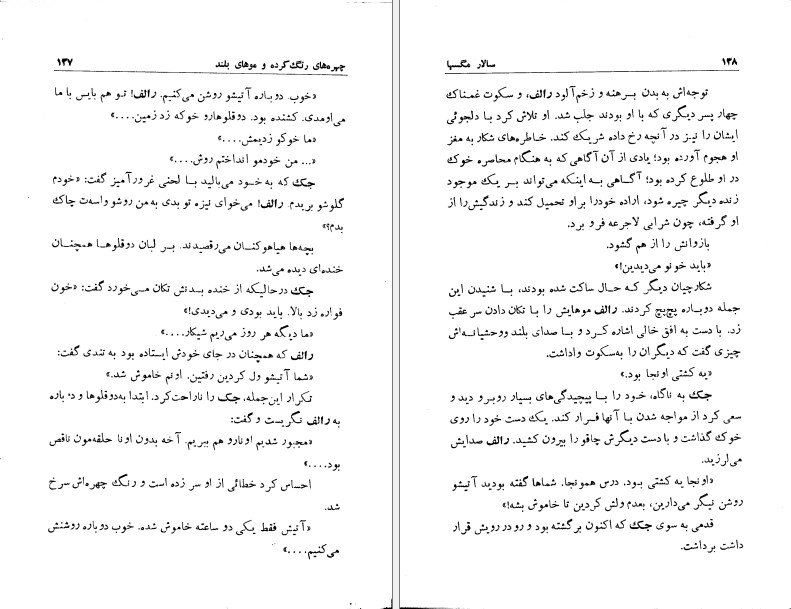 چهره‌های رنگ‌کرده و موهای بلند ۱۳۷
«خوب. دوباره آتیشو روشن می‌کنیم. رالف! تو هم بایس با ما
می‌اومدی. کشنده بود. دوقلوهارو خوکه زد زمین....»
«ما خوکو زدیمش....»
«... من خودمو انداختم روش....»
جک که به خود می‌بالید با لحنی غرورآمیز گفت: «خودم
گلوشو بریدم. رالف! می‌خوای نیزه تو بدی به من روشو واست چاك
بدم؟»
بچه‌ها هیاهوکنان می‌رقصیدند. بر لبان دوقلوها همچنان
خنده‌ای دیده می‌شد.
جک درحالیکه از خنده بدنش تکان می‌خورد گفت: «خون
فواره زد بالا. باید بودی و می‌دیدی!»
«ما دیگه هر روز می‌ریم شیکار....»
رالف که همچنان در جای خودش ایستاده بود به تندی گفت:
«شما آتیشو ول کردین رفتین. اونم خاموش شد.»
تکرار این‌جمله، جک را ناراحت‌کرد. ابتدا به‌دوقلوها و دوباره
به رالف نگریست و گفت:
«مجبور شدیم اونارو هم ببریم. آخه بدون اونا حلقه‌مون ناقص
بود....»
احساس کرد خطائی از او سر زده است و رنگ چهره‌اش سرخ
شد.
«آتیش فقط یکی دو ساعته خاموش شده. خوب دوباره روشنش
می‌کنیم....»
۱۳۸ سالار مگسها
توجه‌اش به بدن برهنه و زخم‌آلود رالف، و سکوت غمناك
چهار پسر دیگری که با او بودند جلب شد. او تلاش کرد با دلجوئی
ایشان را نیز در آنچه رخ داده شریك کند. خاطره‌های شکار به مغز
او هجوم آورده بود؛ یادی از آن آگاهی که به هنگام محاصره خوك
در او طلوع کرده بود؛ آگاهی به اینکه می‌تواند بر یك موجود
زنده دیگر چیره شود، اراده خودرا بر او تحمیل کند و زندگیش‌را از
او گرفته، چون شرابی لاجرعه فرو برد.
بازوانش را از هم گشود.
«باید خونو می‌دیدین!»
شکارچیان دیگر که حال ساکت شده بودند، با شنیدن این
جمله دوباره پچ‌پچ کردند. رالف موهایش را با تکان دادن سر عقب
زد. با دست به افق خالی اشاره کرد و با صدای بلند ووحشیانه‌اش
چیزی گفت که دیگران را به‌سکوت واداشت.
«یه کشتی اونجا بود.»
جک به ناگاه، خود را با پیچیدگی‌های بسیار روبرو دید و
سعی کرد از مواجه شدن با آنها فرار کند. یك دست خود را روی
خوك گذاشت و با دست دیگرش چاقو را بیرون کشید. رالف صدایش
می‌لرزید.
«اونجا یه کشتی بود. درس همونجا. شماها گفته بودید آتیشو
روشن نیگر می‌دارین، بعدم ولش کردین تا خاموش بشه!»
قدمی به سوی جک که اکنون برگشته بود و رو در رویش قرار
داشت برداشت.